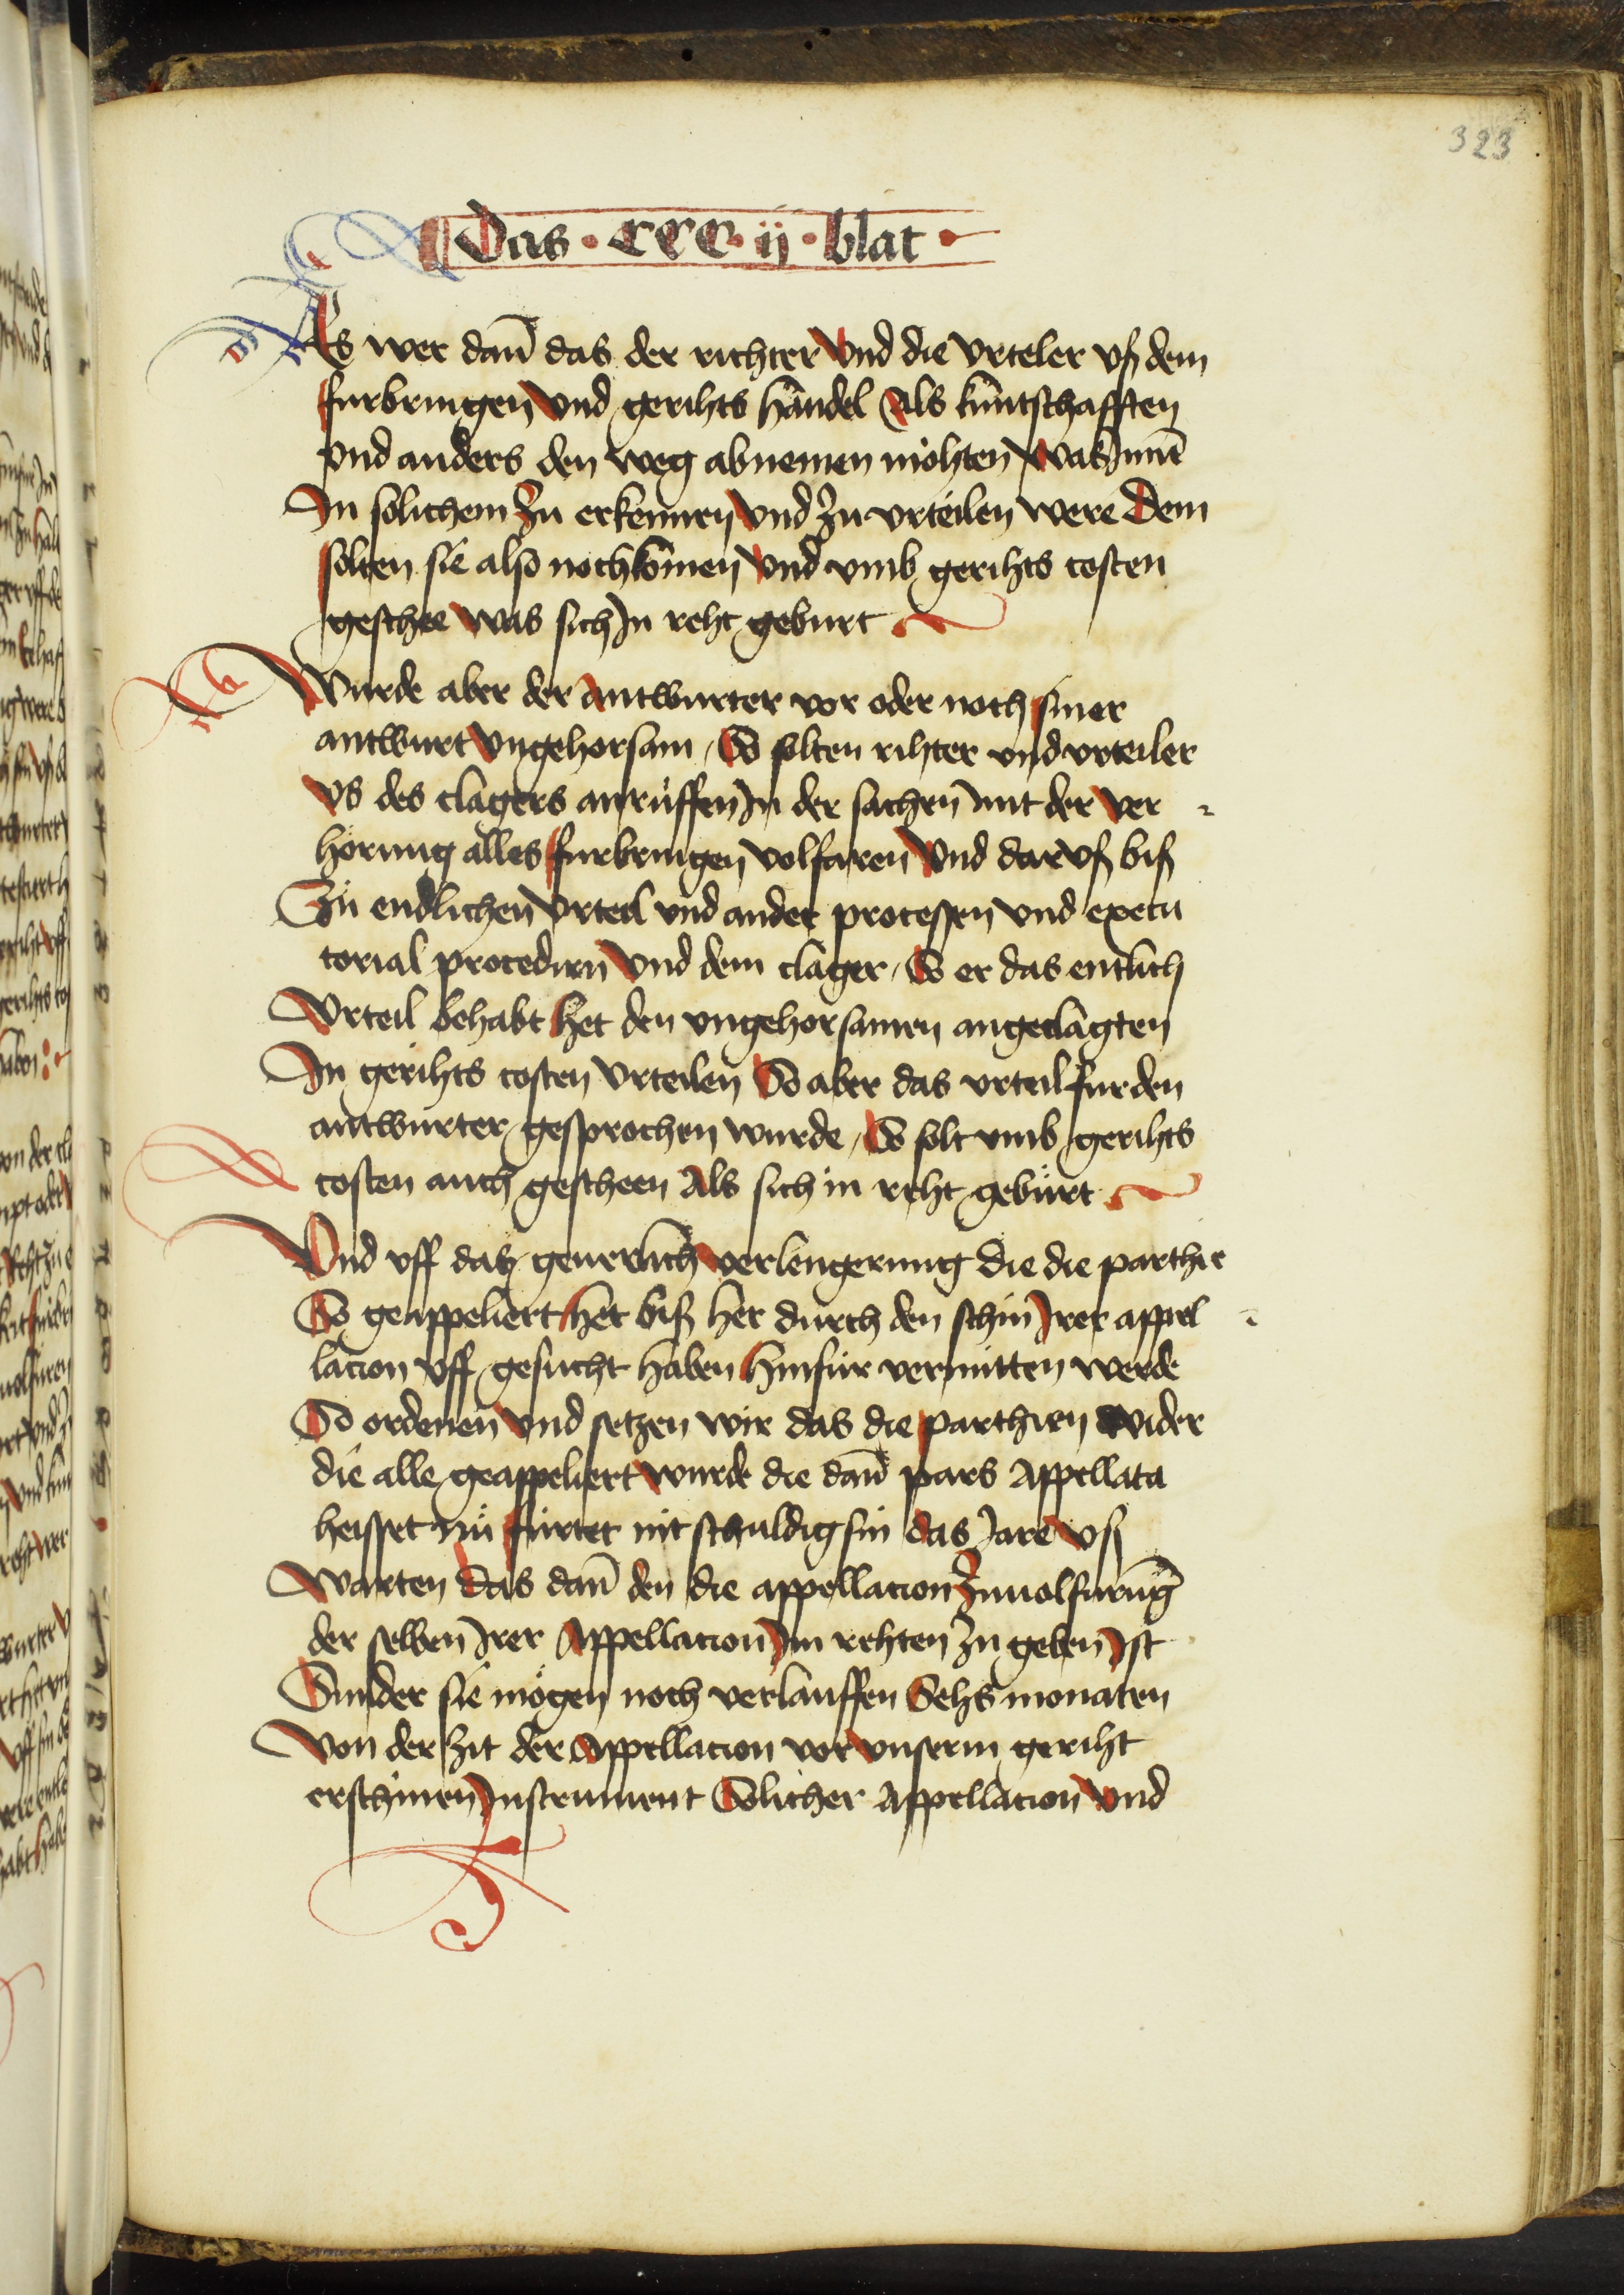 323
Das · CCC · ij · blat ·
Es wer dan̄ das der richter vnd die vrteler vß dem
furbringen vnd gerihts handel Als kuntschafften
vnd anders den weg abnemen möhten was Inen
In solichem zu erkennen vnd zu vrteilen were Dem
solten sie also nochkōmen vnd vmb gerihts costen
geschee was sich In reht geburt
Wurde aber der antwurter vor oder noch siner
antwurt vngehorsam / So solten rihter vnd vrteiler
vs des clagers anruffen In der sachen mit der ver
hörung alles furbringen volfaren vnd dar vß biß
Zu endlichen vrteil vnd ander processen vnd execu
torial procedirn vnd dem clager / So er das entlich
Vrteil behabt het den vngehorsamen angeclagten
In gerihts costen vrteilen So aber das vrteil fur den
antwurter gesprochen wurde / So solt vmb gerihts
costen auch gescheen Als sich in reht gebürt
Vnd vff das geuerlich verlengerung die die parthie
So geappeliert het biß her durch den schin Irer appel
lacion vff gesucht haben hinfür vermitten werde
So ordenen vnd setzen wir das die parthien wider
die alle geappeliert wurde die dan̄ pars Appellata
heisset nü fürter nit schuldig sin das Jare vß
Warten das dan̄ den die appellacion zuuolfurung
der selben Irer Appellacion Im rehten zu geben Ist
Sunder sie mögen noch verlauffen Sehs monaten
Von der zit der Appellacion vor vnserm geriht
erschinen Instrument Solicher Appellacion vnd